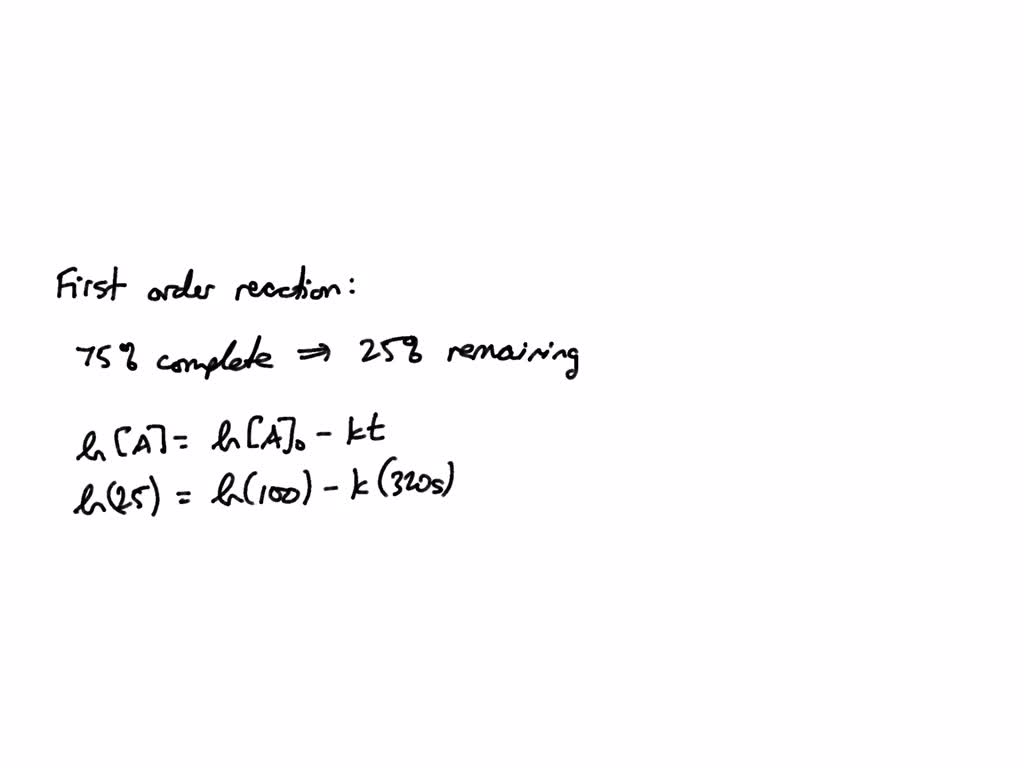 First order reaction:
75% complete ⇒ 25% remaining
ln[A] = ln[A]₀ - kt
ln(25) = ln(100) - k(320s)